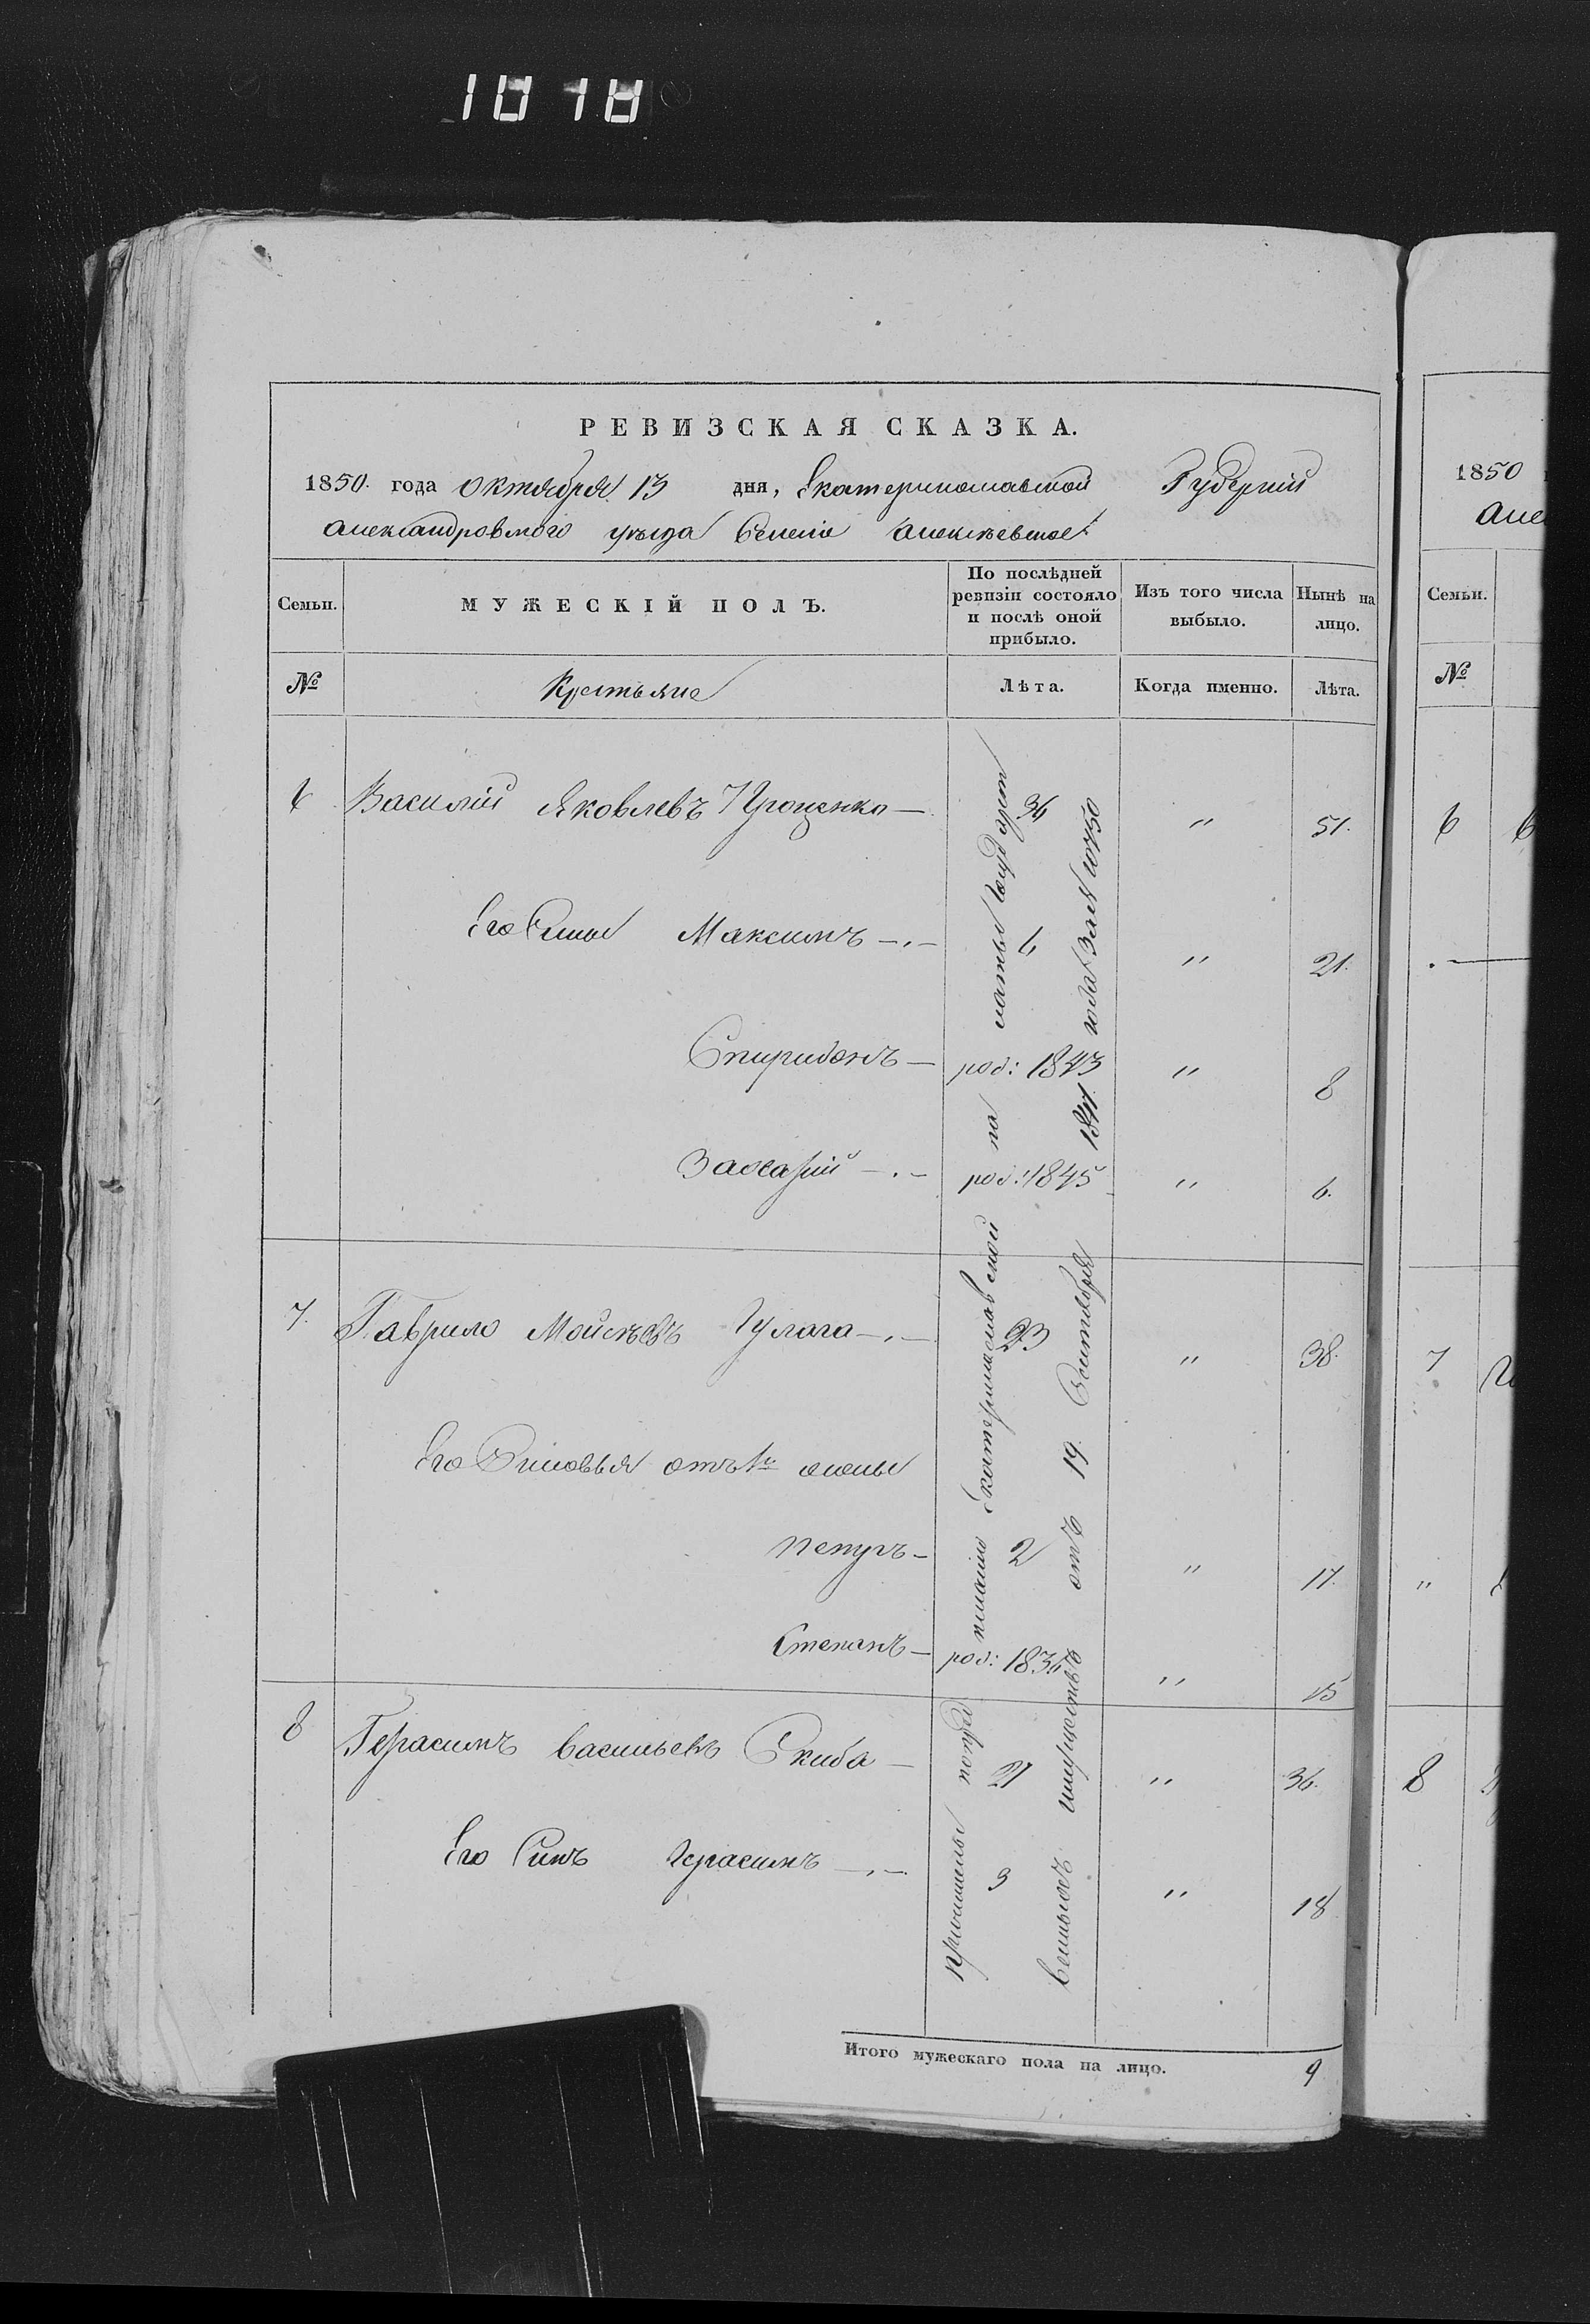 1078
РЕВИЗСКАЯ СКАЗКА.
1850. года Октября 13 дня, Екатеринославской Губернии
Александровского уѣзда Селенія Алексѣевское
Семьи. МУЖЕСКІЙ ПОЛЪ. По послѣдней ревизіи состояло и послѣ оной прибыло. Изъ того числа выбыло. Нынѣ на лицо.
№ Крестьяне Лѣта. Когда именно. Лѣта.
6 Василій Яковлевъ Проценко — 36 " 51.
Его Сины Максимъ —.— 6 " 21.
Спиридонъ — род: 1843 " 8
Захарій —.— род: 1845 " 6.
7. Гаврило Мойсѣевъ Гулага —.— 23 " 38.
Его Синовья отъ 1й жены
Петръ — 2 " 17.
Степанъ — род: 1836 " 15
8 Герасимъ Васильевъ Скиба — 21 " 36.
Его Синъ Герасимъ —.— 3 " 18
Причислены по
Екатеринославской
на
латы Госуд
имуществъ отъ 19 Сентября 1841 года за № 10750
Итого мужескаго пола на лицо. 9
1850
Але
Семьи.
№
6
7
"
8